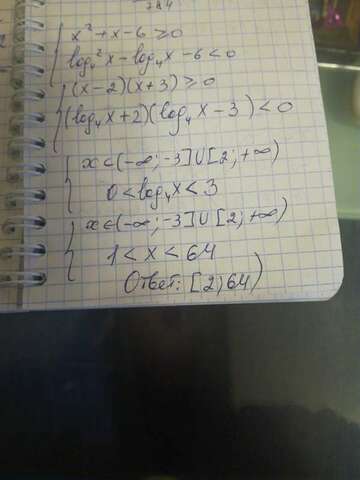 x² + x - 6 ≥ 0
log₄²x - log₄x - 6 < 0
(x - 2)(x + 3) ≥ 0
(log₄x + 2)(log₄x - 3) < 0
x ∈ (-∞; -3] ∪ [2; +∞)
0 < log₄x < 3
x ∈ (-∞; -3] ∪ [2; +∞)
1 < x < 64
Ответ: [2; 64)